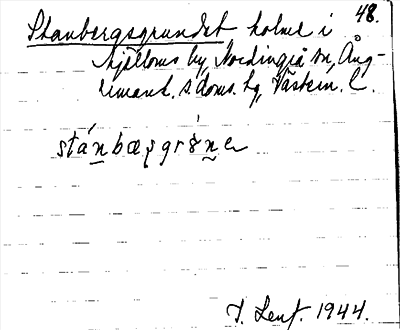 48.
Stanbergsgrundet holme i
Mjälloms by, Nordingrå sn, Ång-
ermanl. s. doms. hg, Västern. l.
stánbæȿgrꞩ̀ne
T. Lenf. 1944.